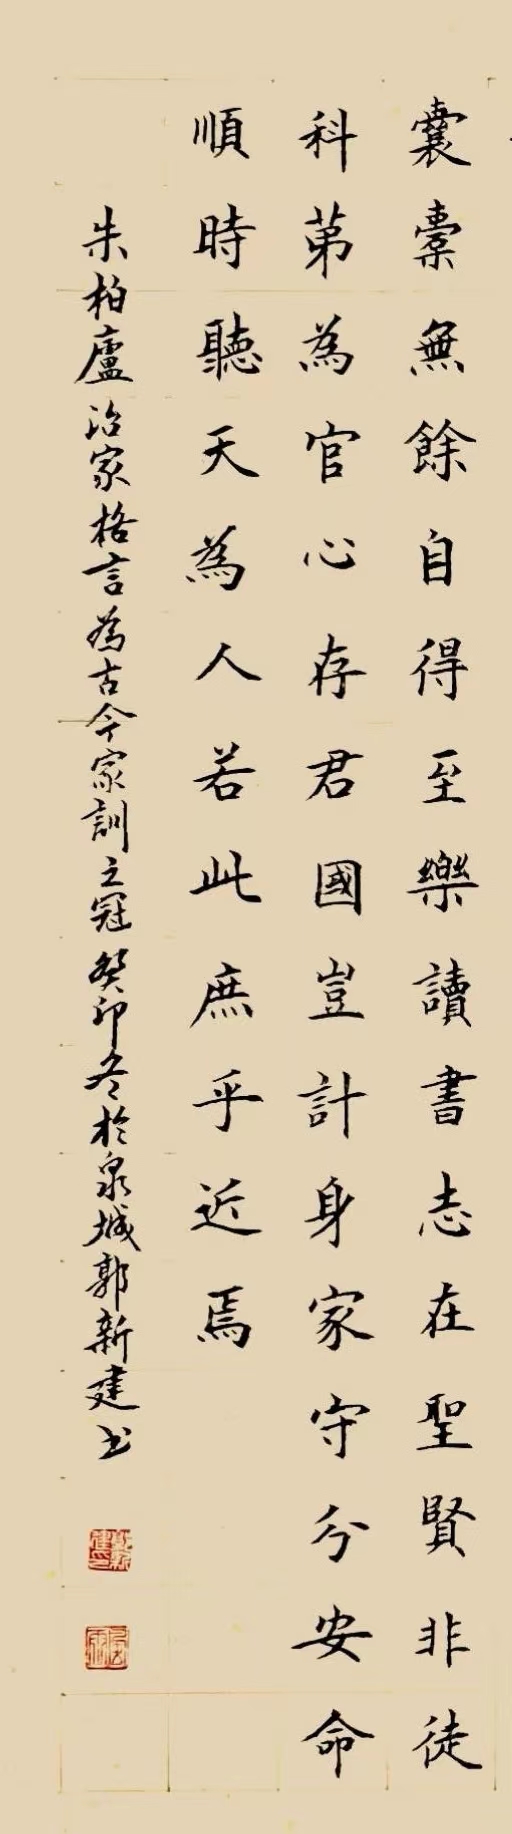 囊橐無餘自得至樂讀書志在聖賢非徒
科第為官心存君國豈計身家守分安命
順時聽天為人若此庶乎近焉
朱柏廬治家格言為古今家訓之冠癸卯冬於泉城郭新建书